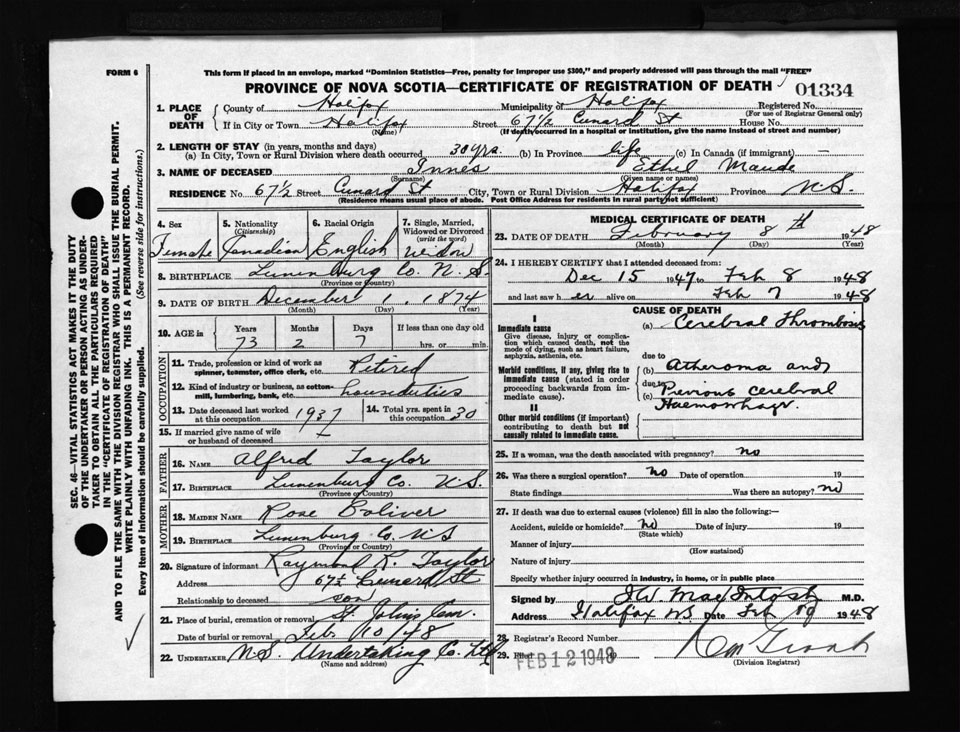 FORM 6
This form if placed in an envelope, marked "Dominion Statistics—Free, penalty for improper use $300," and properly addressed will pass through the mail "FREE"
PROVINCE OF NOVA SCOTIA—CERTIFICATE OF REGISTRATION OF DEATH
01334
1. PLACE OF DEATH
County of Halifax Municipality of Halifax Registered No.
(For use of Registrar General only)
If in City or Town Halifax Street 67½ Cunard St House No.
(Name) (If death occurred in a hospital or institution, give the name instead of street and number)
2. LENGTH OF STAY (in years, months and days)
(a) In City, Town or Rural Division where death occurred 30 yrs. (b) In Province life (c) In Canada (if immigrant) —
3. NAME OF DECEASED Innes Ethel Maude
(Surname) (Given name or names)
RESIDENCE No. 67½ Street Cunard St City, Town or Rural Division Halifax Province N.S.
(Residence means usual place of abode. Post Office Address for residents in rural parts not sufficient)
4. Sex 5. Nationality (Citizenship) 6. Racial Origin 7. Single, Married, Widowed or Divorced (write the word)
Female Canadian English Widow
8. BIRTHPLACE Lunenburg Co. N.S.
(Province or Country)
9. DATE OF BIRTH December 1, 1874
(Month) (Day) (Year)
10. AGE in Years Months Days If less than one day old
73 2 7 hrs. or min.
OCCUPATION
11. Trade, profession or kind of work as spinner, teamster, office clerk, etc. Retired
12. Kind of industry or business, as cotton-mill, lumbering, bank, etc. houseduties
13. Date deceased last worked at this occupation 1937 14. Total yrs. spent in this occupation 30
15. If married give name of wife or husband of deceased
FATHER
16. NAME Alfred Taylor
17. BIRTHPLACE Lunenburg Co. N.S.
(Province or Country)
MOTHER
18. MAIDEN NAME Rose Boliver
19. BIRTHPLACE Lunenburg Co. N S
(Province or Country)
20. Signature of informant Raymond R. Taylor
Address 67½ Cunard St
Relationship to deceased son
21. Place of burial, cremation or removal St. John's Cem.
Date of burial or removal Feb. 10/48
22. UNDERTAKER N.S. Undertaking Co. Ltd
(Name and address)
MEDICAL CERTIFICATE OF DEATH
23. DATE OF DEATH February 8th 1948
(Month) (Day) (Year)
24. I HEREBY CERTIFY that I attended deceased from:
Dec 15 1947 to Feb 8 1948
and last saw her alive on Feb 7 1948
CAUSE OF DEATH
I
Immediate cause
Give disease, injury or complication which caused death, not the mode of dying, such as heart failure, asphyxia, asthenia, etc.
(a) Cerebral Thrombosis
due to
Morbid conditions, if any, giving rise to immediate cause (stated in order proceeding backwards from immediate cause).
(b) Atheroma and
due to
(c) Previous cerebral Haemorrhage.
II
Other morbid conditions (if important) contributing to death but not causally related to immediate cause.
25. If a woman, was the death associated with pregnancy? no
26. Was there a surgical operation? no Date of operation 19
State findings Was there an autopsy? no
27. If death was due to external causes (violence) fill in also the following:—
Accident, suicide or homicide? no Date of injury 19
(State which)
Manner of injury
(How sustained)
Nature of injury
Specify whether injury occurred in industry, in home, or in public place
Signed by MacIntosh M.D.
Address Halifax NS Date Feb 19 1948
28. Registrar's Record Number
29. Filed FEB 12 1948
(Division Registrar)
SEC. 46—VITAL STATISTICS ACT MAKES IT THE DUTY
OF THE UNDERTAKER OR PERSON ACTING AS UNDER-
TAKER TO OBTAIN ALL THE PARTICULARS REQUIRED
IN THE "CERTIFICATE OF REGISTRATION OF DEATH"
AND TO FILE THE SAME WITH THE DIVISION REGISTRAR WHO SHALL ISSUE THE BURIAL PERMIT.
WRITE PLAINLY WITH UNFADING INK. THIS IS A PERMANENT RECORD.
Every item of information should be carefully supplied. (See reverse side for instructions.)